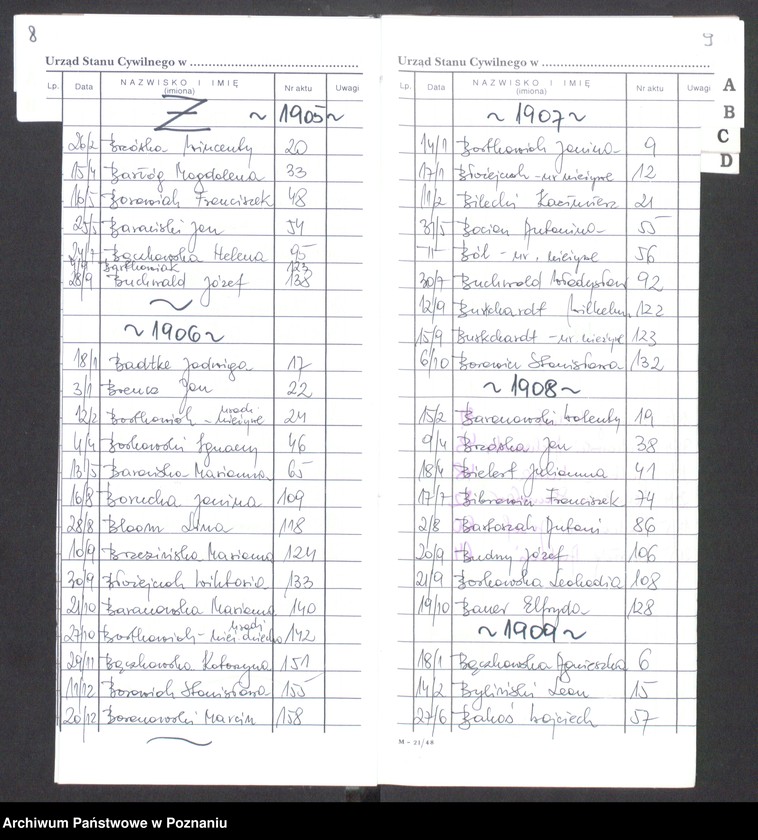 8
Urząd Stanu Cywilnego w
Lp. Data NAZWISKO I IMIĘ (imiona) Nr aktu Uwagi
~ 1905 ~
26/2 Brzóska Wincenty 20
15/4 Baróg Magdalena 33
16/5 Borowiak Franciszek 48
25/5 Barański Jan 54
24/7 Bączkowska Helena 95
Bartkowiak 123
28/9 Buchwald Józef 138
~ 1906 ~
18/1 Badtke Jadwiga 17
3/1 Brenca Jan 22
12/2 Bartkowiak - nieżywe 24
4/4 Borkowski Ignacy 46
13/5 Barańska Marianna 65
16/8 Borucka Janina 109
28/8 Bloom Lina 118
10/9 Brzezińska Marianna 124
30/9 Błożejczak Wiktoria 133
21/10 Baranowska Marianna 140
27/10 Bartkowiak - 142
29/11 Bączkowska Katarzyna 151
11/12 Borowiak Stanisława 155
20/12 Baranowski Marcin 158
9
Urząd Stanu Cywilnego w
Lp. Data NAZWISKO I IMIĘ (imiona) Nr aktu Uwagi
A
B
C
D
~ 1907 ~
14/1 Bartkowiak Janina 9
17/1 Błożejczak - ur. nieżywe 12
11/2 Bilecki Kazimierz 21
31/5 Bocian Antonina 55
-"- Bąk - ur. nieżywe 56
30/7 Buchwald Władysław 92
12/9 Burkhardt Wilhelm 122
15/9 Burkchardt - ur. nieżywe 123
6/10 Borowicz Stanisława 132
~ 1908 ~
15/2 Baranowski Walenty 19
9/4 Brzóska Jan 38
18/4 Bielert Julianna 41
17/7 Bibrowicz Franciszek 74
2/8 Bartorzak Antoni 86
20/9 Budny Józef 106
21/9 Borkowska Leokadia 108
19/10 Bauer Elfryda 128
~ 1909 ~
18/1 Bączkowska Agnieszka 6
14/2 Byliński Leon 15
27/6 Bakoś Wojciech 57
M - 21/46
Archiwum Państwowe w Poznaniu